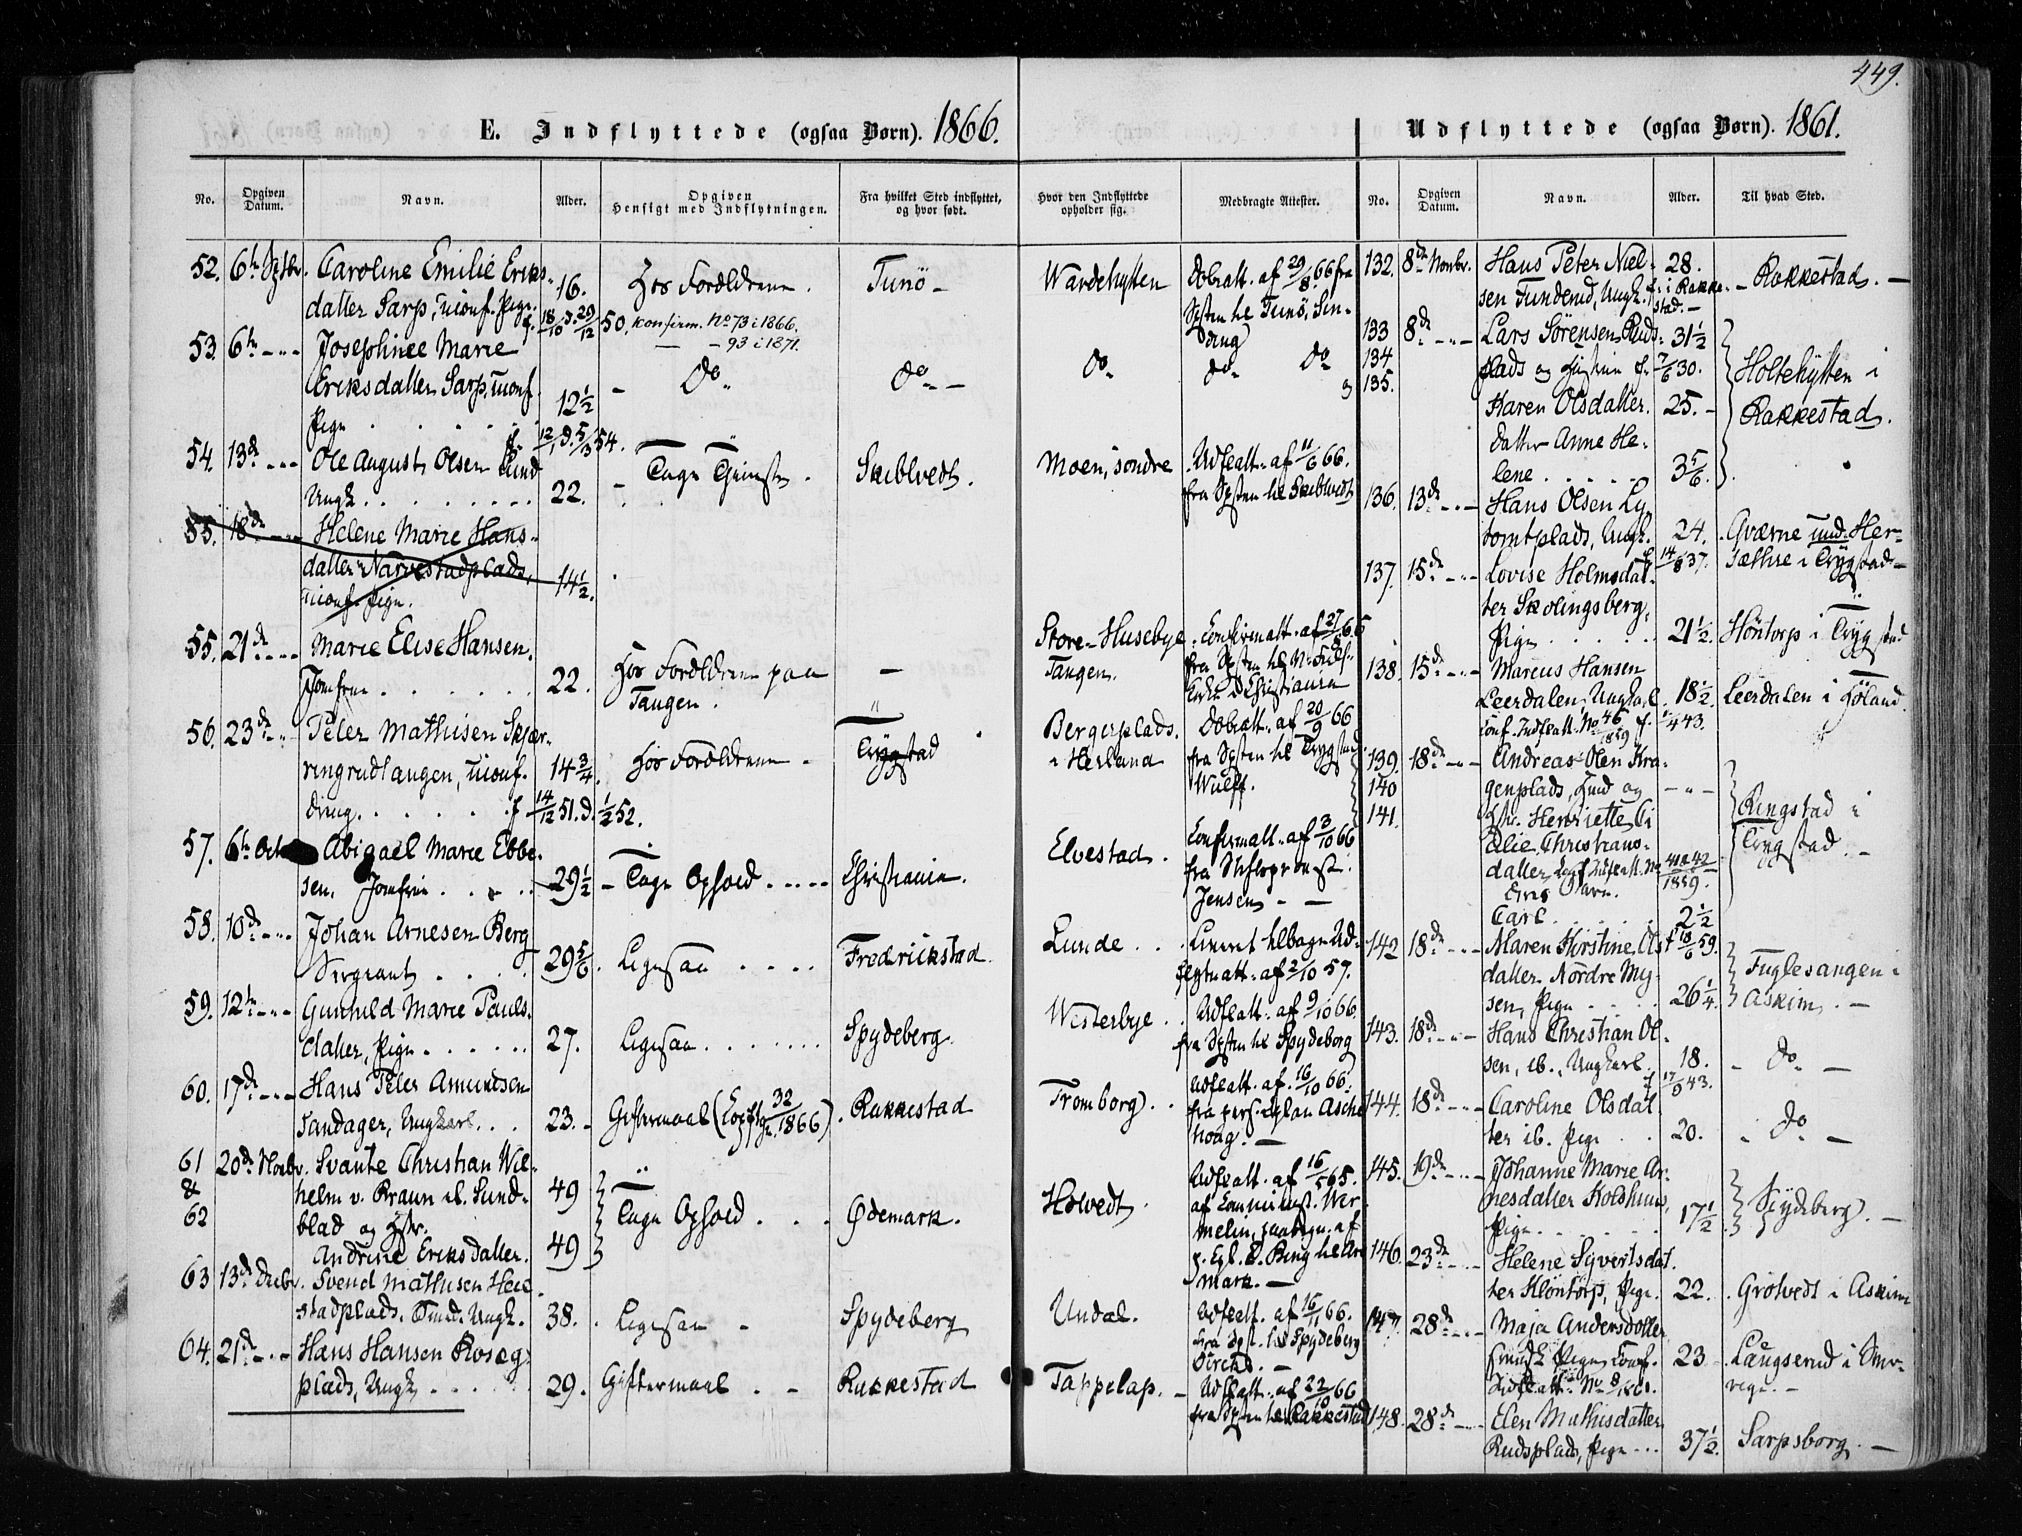 449.
E. Indflyttede (ogsaa Børn). 1866.
No.
Opgiven Datum.
Navn.
Alder.
Opgiven Hensigt med Indflytningen.
Fra hvilket Sted indflyttet, og hvor født.
Hvor den Indflyttede opholder sig.
Medbragte Attester.
52. 6te Septbr. Caroline Emilie Eriks-
datter Sarp, uconf. Pige. 16. Hos Forældrene. Tunø —
18/10 d. 29/12 50. Konfirm. No 73 i 1866.
— — 93 i 1871.
Wardehytten
Dobeatt. af 29/8 66 fra
Spsten til Tunø, Sin-
ding
53. 6te — Josephine Marie
Eriksdatter Sarp, uconf.
Pige 12 1/2 — Do. Do. — Do. Do. Do.
12/1 d. 5/3 54.
54. 13de — Ole August Olsen Lund
Ungk. 22. — Tage Tjeneste. Skiblvedt. Moen, søndre
Udflatt. af 11/6 66.
fra Spsten til Skiblvedt
55. 18de — Helene Marie Hans-
datter Narvestadplads,
uconf. Pige. 14 1/2.
55. 21de — Marie Elise Hansen,
Jomfru 22. Hos Forældrene paa
Tangen. —
Store-Husebye
Tangen.
Confirmatt. af
fra Spsten til
Christiania
56. 23de — Peter Mathisen Skjær-
ringrudtangen, uconf.
dreng. 14 3/4. Hos Forældrene. Trygstad
14/12 51. d. 1/2 52.
Bergerplads
i Herland
Dobeatt. af 20/9 66
fra Spsten til Trygstad
Wulff.
57. 6te Octb Abigael Marie Ebbe-
sen, Jomfrue 29 1/2 — Tage Ophold Christiania. Elvestad.
Confirmatt. af 3/10 66
fra Stiftsprovst
Jensen —
58. 10de — Johan Arnesen Berg
Sergeant 29 5/6. Ligesaa Fredrickstad. Lunde
Leveret tilbage Ud-
flgtsatt. af 2/10 57.
59. 12te — Gunhild Marie Pauls-
datter, Pige 27. Ligesaa Spydeberg. Westerbye
Udflatt. af 9/10 66.
fra Spsten til Spydeberg
60. 17de — Hans Peter Amundsen
Sandager, Ungkarl. 23. Giftermaal (Copftg. 32/1866). Rakkestad Tromborg
Udflatt. af 16/10 66.
fra pers. Cplan Asche-
houg. —
61 20de Novbr. Svante Christian Wil-
&
62
helm v. Braun el. Sund-
blad og Hstr.
Andrine Eriksdatter.
49
49
Tage Ophold Ødemark. Holvedt
Udflatt. af 16/5 65.
af Comminist. Wer-
melin, paategn. af
p. Cpl. B. Bing til Are-
mark. —
63 13de Decbr. Svend Mathisen Hee-
stadplads, Smed. Ungk. 38. Ligesaa Spydeberg Undal.
Udflatt. af 16/11 66.
fra Spst. til Spydeberg
64. 21de — Hans Hansen Rosæg-
plads, Ungk. 29. Giftermaal Rakkestad Tappelap.
Udflatt. af 22/10 66
fra Spsten til Rakkestad
Udflyttede (ogsaa Børn). 1861.
No.
Opgiven Datum.
Navn.
Alder.
Til hvad Sted.
132. 8de Novbr. Hans Peter Niel-
sen Tunderud, Ungk. 28. — Rakkestad. —
f. i Rakke-
stad. —
133 8de — Lars Sørensen Ruds-
134
135.
plads og Hustrue 31 1/2
f. 7/6 30.
Karen Olsdatter. 25. —
Datter Anne He-
lene 3 5/6.
Holtehytten i
Rakkestad.
136. 13de — Hans Olsen Ly-
tomtplads, Ungk. 24. Qværne und. Her-
14/8 37. sæthre i Trygstad —
137. 15de — Lovise Holmsdat-
ter Skolingsberg,
Pige 21 1/2. Høntorp i Trygstad
138. 15de — Marcus Hansen
Leerdalen, Ungkarl 18 1/2. Leerdalen i Høland.
conf. Indflatt. No 46/1859 f. 43.
139. 18de — Andreas Olsen Kra-
140
141.
genplads, Smd og — „ —
Hstr. Henriette Ci-
cilie Christians-
datter Conf. Indflatt. No 41 & 42/1859.
Carl 2 1/2
Ringstad i
Trygstad. —
142 18de — Maren Kirstine Ols-
datter Nordre My-
sen, Pige 26 1/4.
f. 18/6 59.
Fuglesangen i
Askim. —
143. 18de — Hans Christian Ol-
sen, ib., Ungkarl. 18. — Do. —
17/9 43.
144. 18de — Caroline Olsdat-
ter ib. Pige 20. „ Do. —
145. 19de — Johanne Marie Ar-
nesdatter Koldhuus,
Pige 17 1/2 Spydeberg. —
146. 23de — Helene Syvertsdat-
ter Kløntorp, Pige. 22. Grotvedt i Askim
147. 28de — Maja Andersdatter
svensk Pige, Conf. 23 Laugserud i Sver-
Indflatt. No 8/1861. rige. —
148. 28de — Elen Mathisdatter
Rudsplads, Pige 37 1/2. Sarpsborg. —